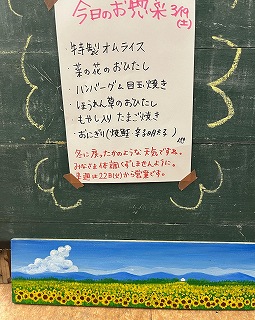 今日のお惣菜 3/19(土)
特製オムライス
・菜の花のおひたし
・ハンバーグ&目玉焼き
・ほうれん草のおひたし
・もやし入りたまご焼き
・おにぎり(焼鮭・辛子明太)
冬に戻ったかのような天気ですね。
みなさま体調くずしませんように。
来週は22日(火)から営業です。